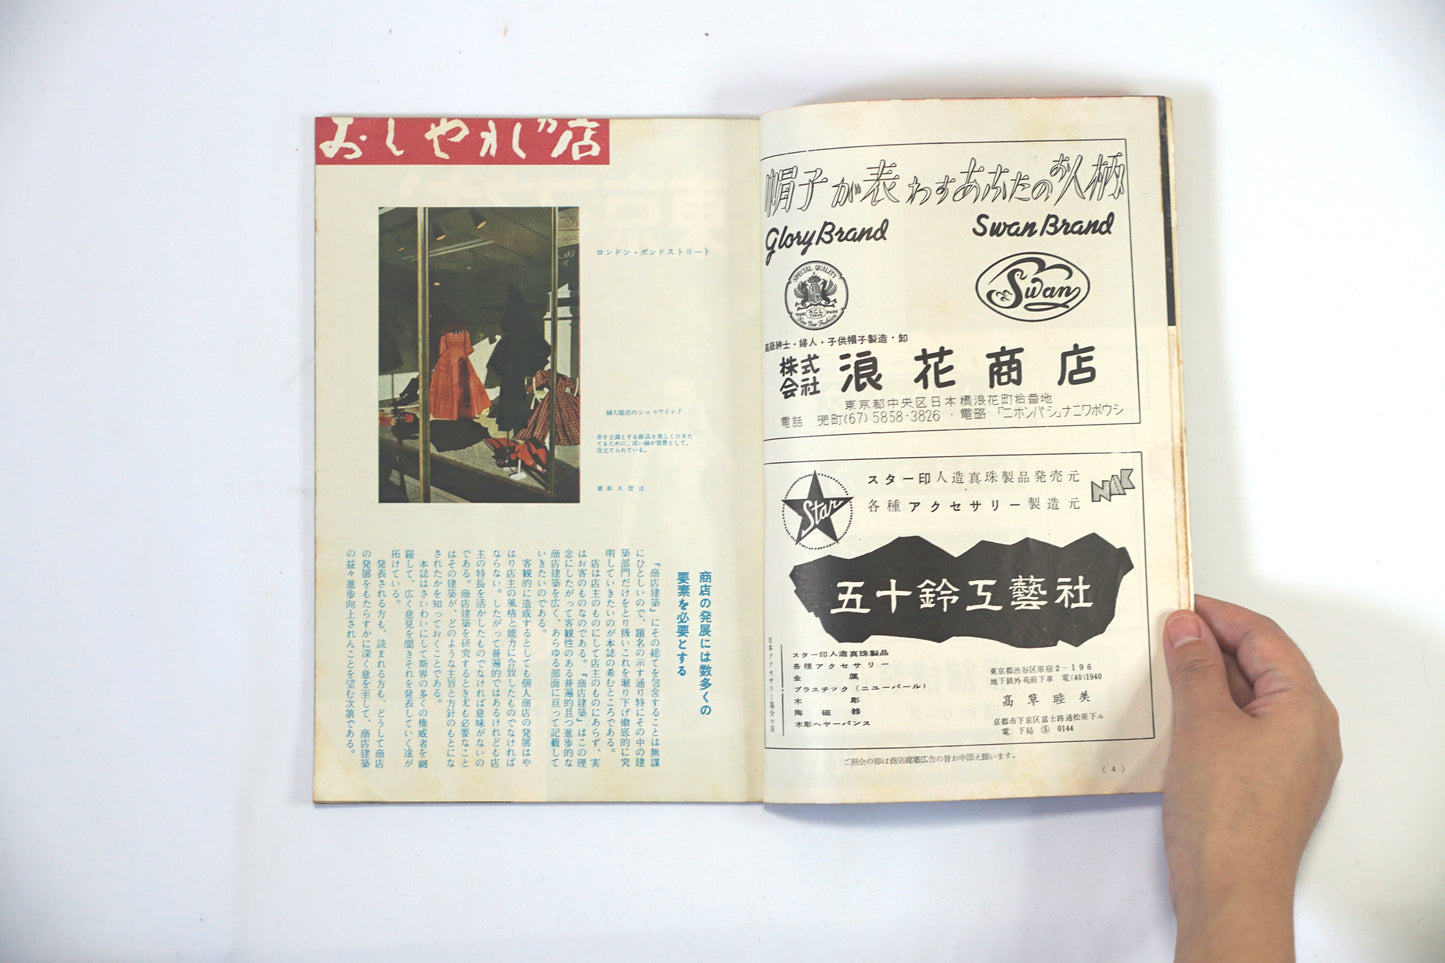 おしやれな店
ロンドン・ボンドストリート
婦人服店のショウウインド
赤を主調とする商品を美しくひきた
てるために、淡い緑が背景として、
役立てられている。
商店の発展には数多くの
要素を必要とする
『商店建築』にその総てを包含することは無謀
にひとしいので、題名の示す通り特にその中の建
築部門だけをとり扱いこれを掘り下げ徹底的に究
明していきたいのが本誌の希むところである。
店は店主のものにして店主のものにあらず、実
はお客のものなのである。『商店建築』はこの理
念にしたがって客観性のある普遍的且つ進歩的な
商店建築を広く、あらゆる部面に亘って記載して
いきたいのである。
客観的に造成するとしても個人商店の発展はや
はり店主の風格と能力に合致したものでなければ
ならない。したがって普遍的ではあるけれども店
主の特長を活かしたものでなければ意味がないの
である。商店建築を研究するとき尤も必要なこと
はその建築が、どのような主旨と方針のもとにな
されたかを知っておくことである。
本誌はさいわいにして斯界の多くの権威者を網
羅して、広く意見を聞きそれを発表していく途が
拓けている。
発表される方も、読まれる方も、どうして商店
の発展をもたらすかに深く意を至して、商店建築
の益々進歩向上されんことを望む次第である。
帽子が表わすあなたのお人柄
Glory Brand
Swan Brand
SPECIAL QUALITY
TRADE N.C.L. MARK
TOKYO
Fine New Fashion
Swan
高級紳士・婦人・子供帽子製造・卸
株式会社 浪花商店
東京都中央区日本橋浪花町拾番地
電話 兜町(67)5858・3826・電略「ニホンバシ」ナニワボウシ
Star
スター印人造真珠製品発売元
各種アクセサリー製造元
NAK
五十鈴工藝社
日本アクセサリー協会々員
スター印人造真珠製品
各種アクセサリー
金属
プラスチック(ニューパール)
木彫
陶磁器
木彫ヘヤーバンス
東京都渋谷区原宿2-196
地下鉄外苑前下車 電(40)1940
髙草睦美
京都市下京区富士路通松原下ル
電 下局 ⑤ 0144
ご照会の節は商店建築広告の旨お申添え願います。
(4)